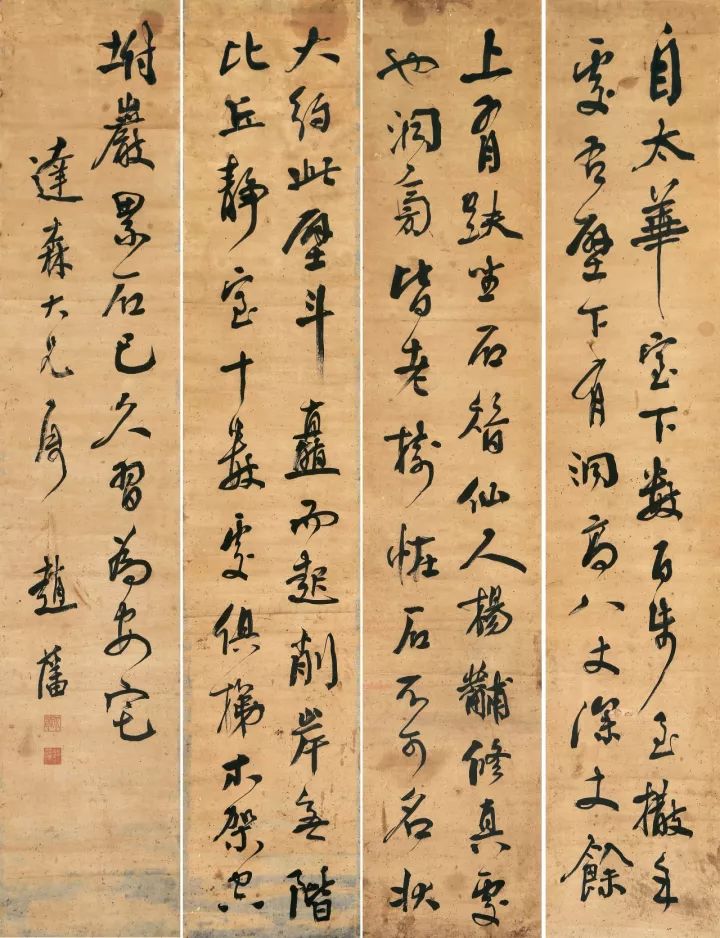 自太華室下數百步至撒手
處壁下有洞高八丈深丈餘
上有趺坐石仙人楊黼修真處
也洞旁皆老樹怪石不可名狀
大約此壁斗矗而起削岸無階
比丘靜室十數處俱梯木架空
坿巖累石已久習為安宅
達森大兄屬 趙藩